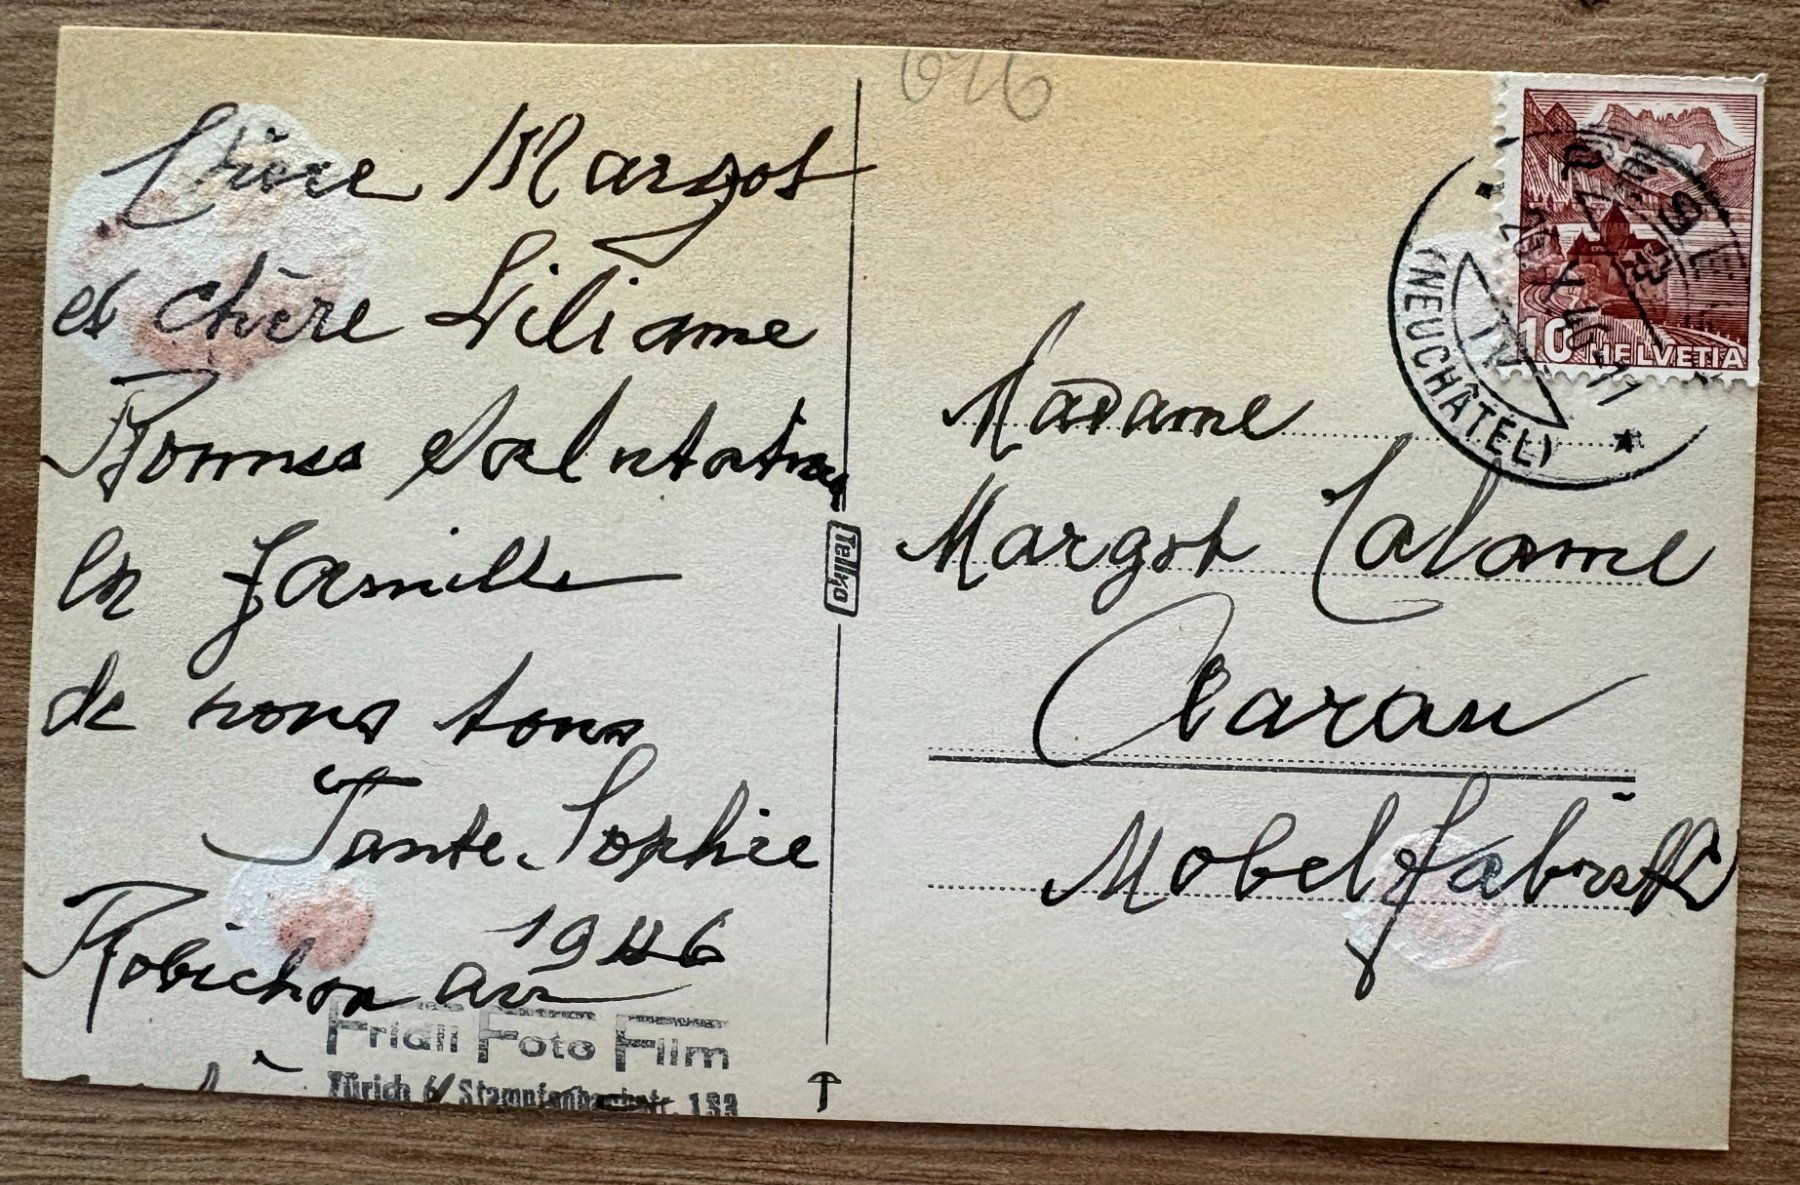 Chère Margot
et chère Liliame
Bonnes Salutations
en famille
de nous tous
Tante Sophie
Robichon
1946
Fridli Foto Film
Zürich 6/ Stampfenbachstr. 133
Tellko
646
HELVETIA
10
(NEUCHÂTEL)
Madame
Margot Calame
Aarau
Möbelfabrik